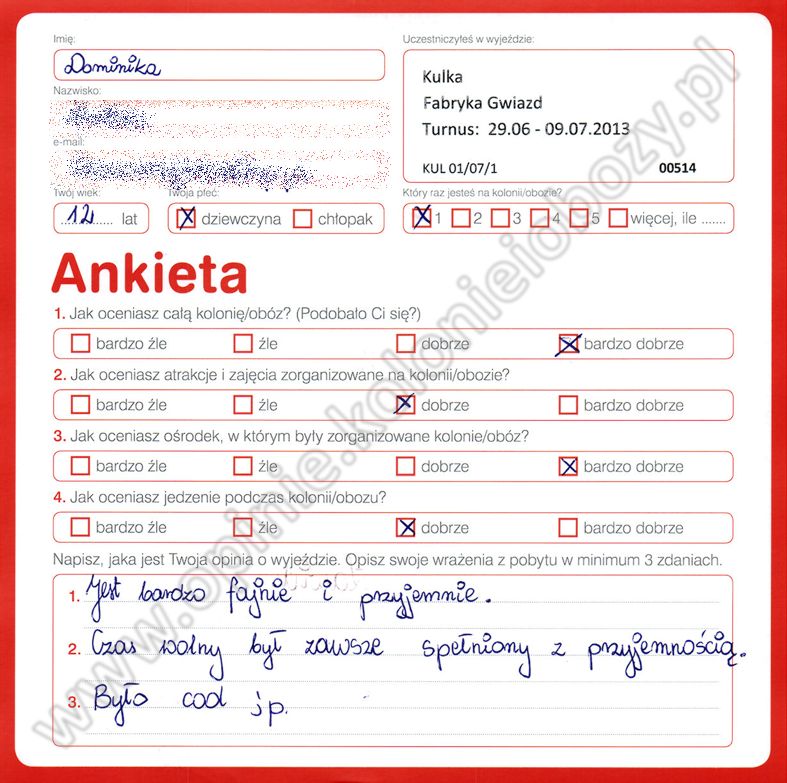 Imię:
Uczestniczyłeś w wyjeździe:
Dominika
Kulka
Nazwisko:
Fabryka Gwiazd
Turnus: 29.06 - 09.07.2013
e-mail:
KUL 01/07/1 00514
Twój wiek:
Twoja płeć:
Który raz jesteś na kolonii/obozie?
12 lat
dziewczyna chłopak
1 2 3 4 5 więcej, ile .......
Ankieta
1. Jak oceniasz całą kolonię/obóz? (Podobało Ci się?)
bardzo źle źle dobrze bardzo dobrze
2. Jak oceniasz atrakcje i zajęcia zorganizowane na kolonii/obozie?
bardzo źle źle dobrze bardzo dobrze
3. Jak oceniasz ośrodek, w którym były zorganizowane kolonie/obóz?
bardzo źle źle dobrze bardzo dobrze
4. Jak oceniasz jedzenie podczas kolonii/obozu?
bardzo źle źle dobrze bardzo dobrze
Napisz, jaka jest Twoja opinia o wyjeździe. Opisz swoje wrażenia z pobytu w minimum 3 zdaniach.
1. Jest bardzo fajnie i przyjemnie.
2. Czas wolny był zawsze spełniony z przyjemnością.
3. Było cool jp.
www.opinie.kolonieiobozy.pl